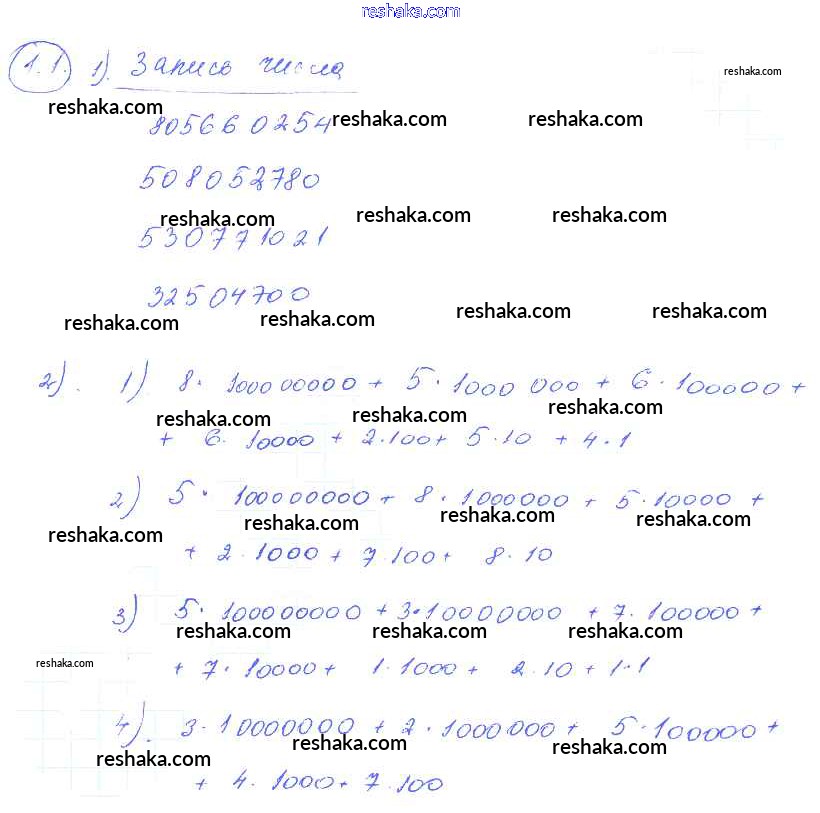 reshaka.com
1.1. 1). Запись числа
reshaka.com
reshaka.com
805660254
reshaka.com
reshaka.com
508052780
reshaka.com
reshaka.com
reshaka.com
530771021
32504700
reshaka.com
reshaka.com
reshaka.com
reshaka.com
2). 1) 8· 100000000 + 5·1000 000 + 6·100000 +
reshaka.com
reshaka.com
reshaka.com
+ 6· 10000 + 2·100+ 5·10 + 4·1
2) 5· 100000000 + 8·1000000 + 5·10000 +
reshaka.com
reshaka.com
reshaka.com
reshaka.com
+ 2·1000 + 7·100+ 8·10
3) 5· 100000000 + 3·10000000 + 7·100000 +
reshaka.com
reshaka.com
reshaka.com
reshaka.com
+ 7·10000+ 1·1000+ 2·10 + 1·1
4). 3·10000000 + 2·1000000+ 5·100000 +
reshaka.com
reshaka.com
reshaka.com
+ 4·1000+ 7·100